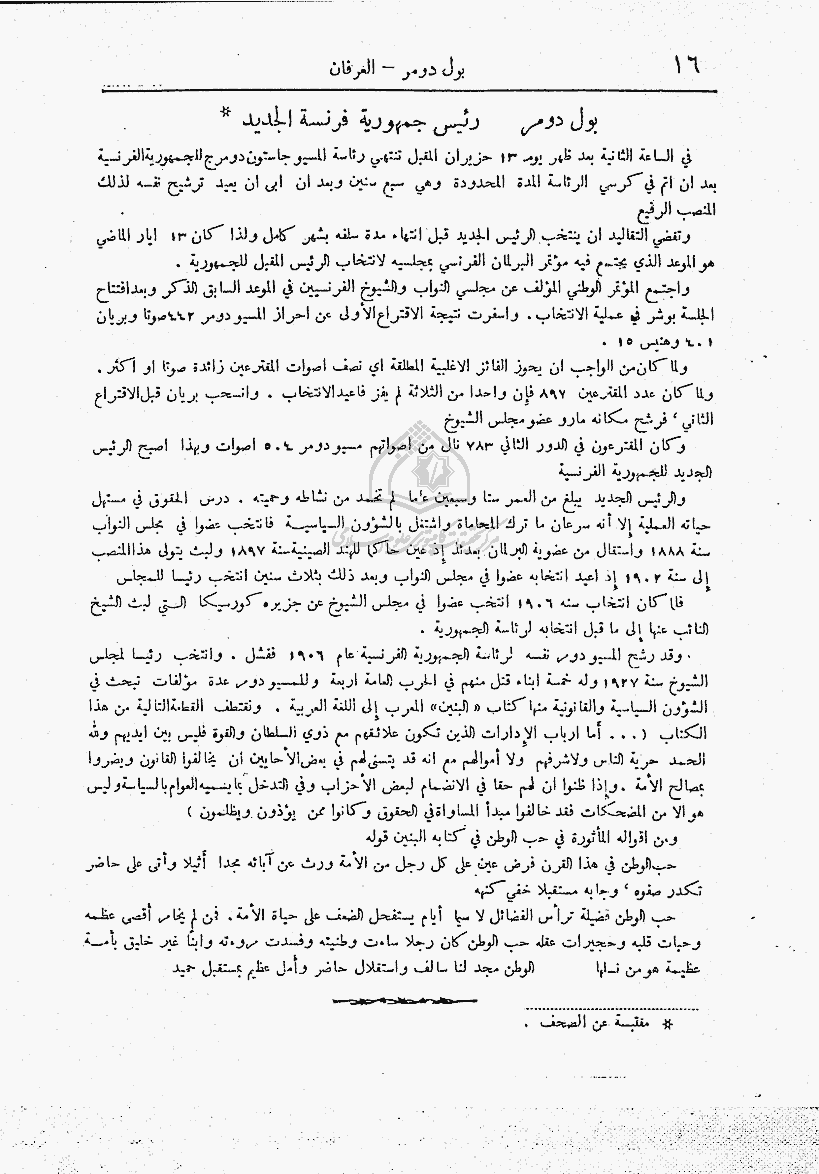 ١٦
بول دومر – العرفان
بول دومر رئيس جمهورية فرنسة الجديد *
في الساعة الثانية بعد ظهر يوم ١٣ حزيران المقبل تنتهي رئاسة المسيو جاستون دومرج للجمهورية الفرنسية
بعد ان اتم في كرسي الرئاسة المدة المحدودة وهي سبع سنين وبعد ان ابى ان يعيد ترشيح نفسه لذلك
المنصب الرفيع
وتقضي التقاليد ان ينتخب الرئيس الجديد قبل انتهاء مدة سلفه بشهر كامل ولذا كان ١٣ ايار الماضي
هو الموعد الذي يجتمع فيه مؤتمر البرلمان الفرنسي بمجلسيه لانتخاب الرئيس المقبل للجمهورية .
واجتمع المؤتمر الوطني المؤلف عن مجلسي النواب والشيوخ الفرنسيين في الموعد السابق الذكر وبعد افتتاح
الجلسة بوشر في عملية الانتخاب . واسفرت نتيجة الاقتراع الأولى عن احراز المسيو دومر ٤٤٢ صوتا وبريان
٤٠١ وهنيس ١٥ .
ولما كان من الواجب ان يحوز الفائز الاغلبية المطلقة اي نصف اصوات المقترعين زائدة صوتا او اكثر .
ولما كان عدد المقترعين ٨٩٧ فإن واحدا من الثلاثة لم يفز فاعيد الانتخاب . وانسحب بريان قبل الاقتراع
الثاني ، فرشح مكانه مارو عضو مجلس الشيوخ
وكان المقترعون في الدور الثاني ٧٨٣ نال من اصواتهم مسيو دومر ٥٠٤ اصوات وبهذا اصبح الرئيس
الجديد للجمهورية الفرنسية
والرئيس الجديد يبلغ من العمر ستا وسبعين عاما لم تخمد من نشاطه وحميته . درس الحقوق في مستهل
حياته العملية إلا أنه سرعان ما ترك المحاماة واشتغل بالشؤون السياسية فانتخب عضوا في مجلس النواب
سنة ١٨٨٨ واستقال من عضوية البرلمان بعدئذ إذ عين حاكما للهند الصينية سنة ١٨٩٧ ولبث يتولى هذا المنصب
إلى سنة ١٩٠٢ إذ اعيد انتخابه عضوا في مجلس النواب وبعد ذلك بثلاث سنين انتخب رئيسا للمجلس
فلما كان انتخاب سنه ١٩٠٦ انتخب عضوا في مجلس الشيوخ عن جزيره كورسيكا التي لبث الشيخ
النائب عنها إلى ما قبل انتخابه لرئاسة الجمهورية .
وقد رشح المسيو دومر نفسه لرئاسة الجمهورية الفرنسية عام ١٩٠٦ ففشل . وانتخب رئيسا لمجلس
الشيوخ سنة ١٩٢٧ وله خمسة ابناء قتل منهم في الحرب العامة اربعة وللمسيو دومر عدة مؤلفات تبحث في
الشؤون السياسية والقانونية منها كتاب « البنين » المعرب إلى اللغة العربية . ونقتطف القطعة التالية من هذا
الكتاب ( ... أما ارباب الإدارات الذين تكون علائقهم مع ذوي السلطان والقوة فليس بين ايديهم ولله
الحمد حرية الناس ولا شرفهم ولا أموالهم مع انه قد يتسنى لهم في بعض الأحايين ان يخالفوا القانون ويضروا
بمصالح الأمة . وإذا ظنوا ان لهم حقا في الانضمام لبعض الأحزاب وفي التدخل بما يسميه العوام بالسياسة وليس
هو الا من المضحكات فقد خالفوا مبدأ المساواة في الحقوق وكانوا ممن يؤذون ويظلمون )
ومن اقواله المأثورة في حب الوطن في كتابه البنين قوله
حب الوطن في هذا القرن فرض عين على كل رجل من الأمة ورث عن آبائه مجدا أثيلا وأتى على حاضر
تكدر صفوه ، وجابه مستقبلا خفي كنهه
حب الوطن فضيلة ترأس الفضائل لا سيما أيام يستفحل الضعف على حياة الأمة . فمن لم يخامر أقصى عظمه
وحبات قلبه وحجيرات عقله حب الوطن كان رجلا ساءت وطنيته وفسدت مروءته وابنا غير خليق بأمــة
عظيمة هو من نسلها الوطن مجد لنا سالف واستقلال حاضر وأمل عظيم بمستقبل حميد
* مقتبسة عن الصحف .